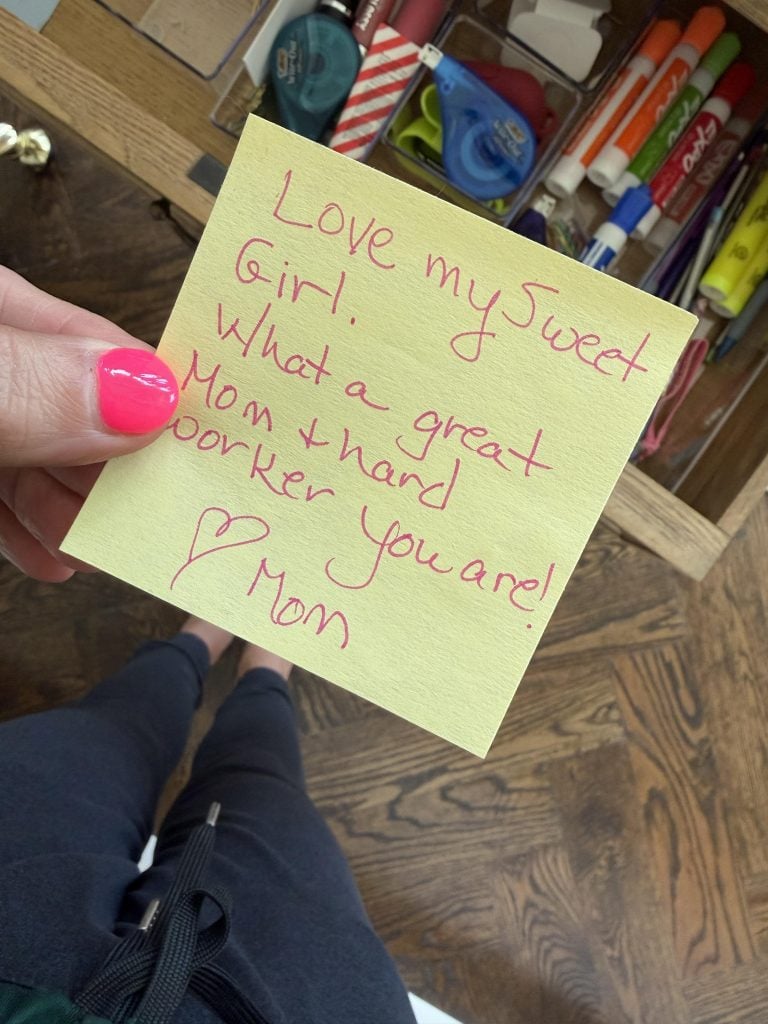 Love my Sweet
Girl.
What a great
Mom + hard
worker you are!
♡ Mom
EXPO
EXPO
EXPO